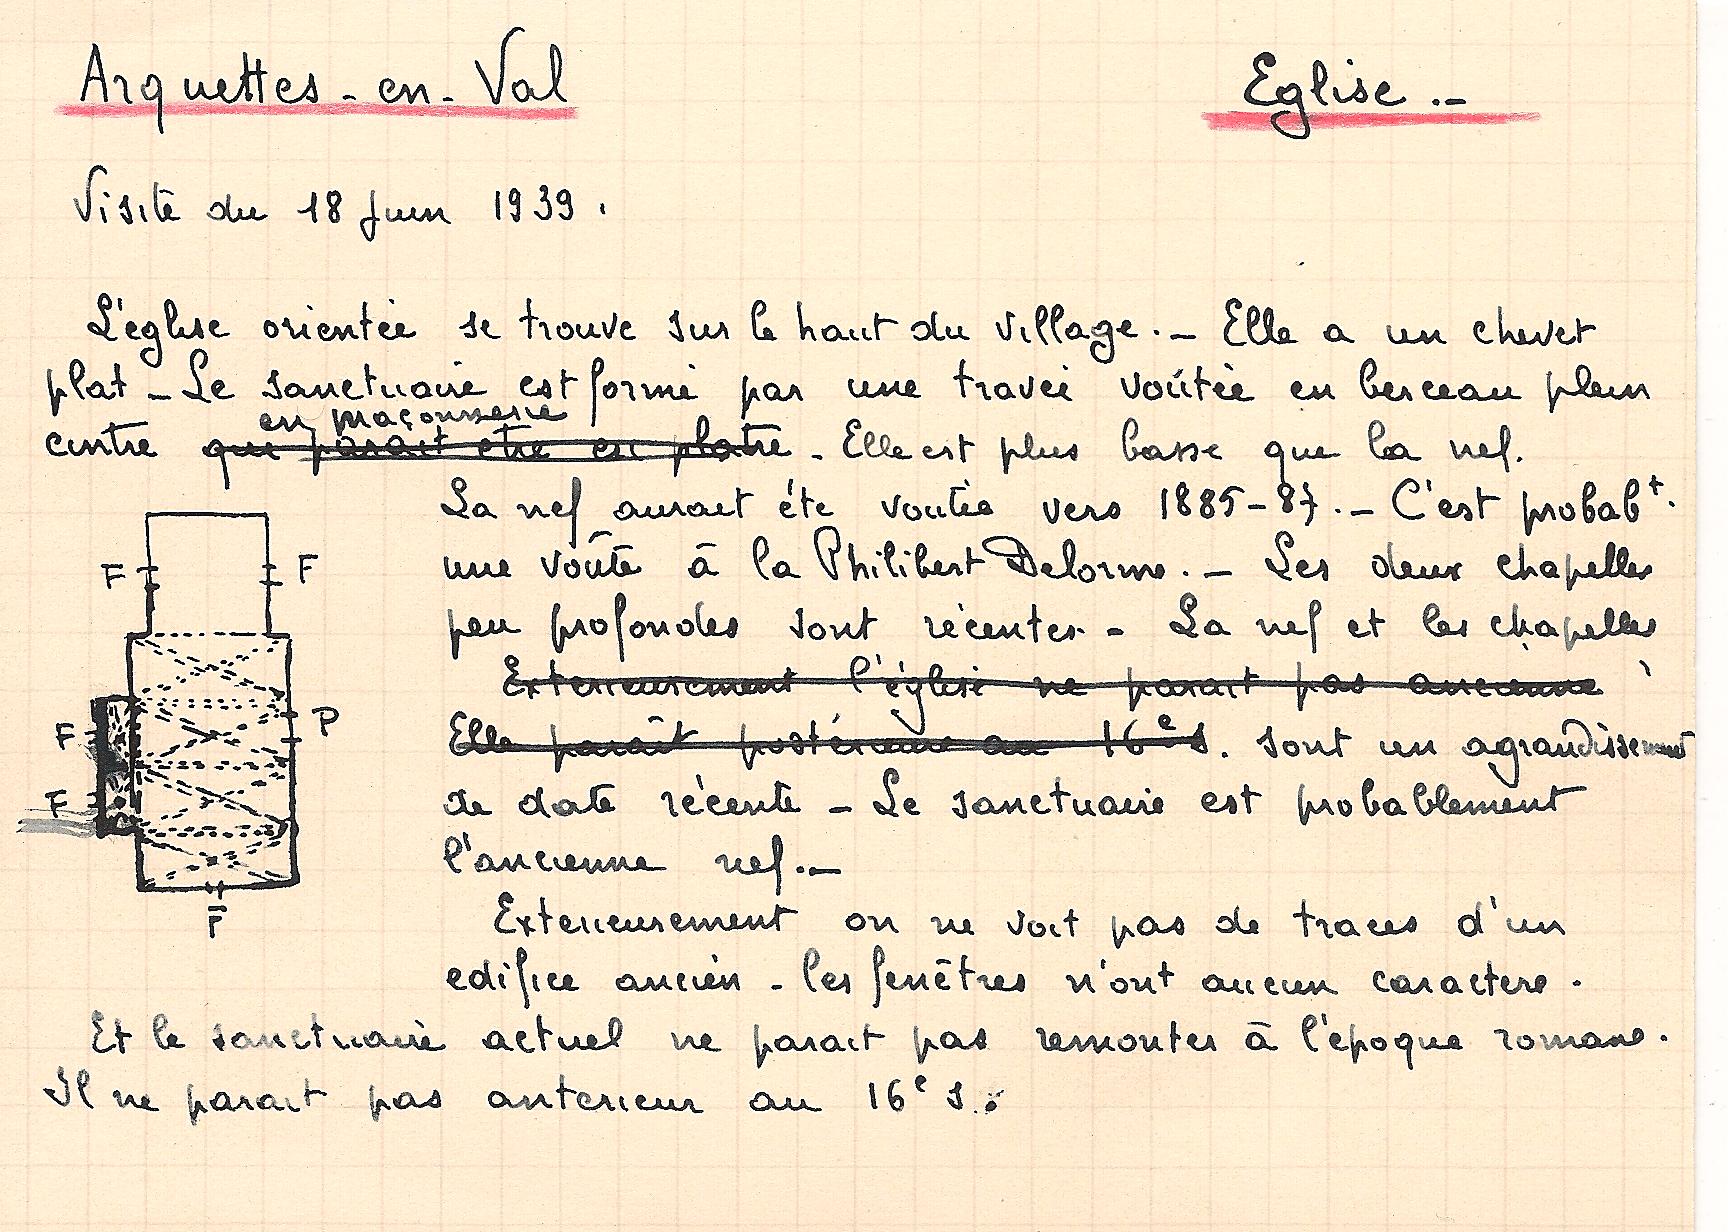 Arquettes-en-Val Eglise.-
Visite du 18 Juin 1939.
L'église orientée se trouve sur le haut du village.- Elle a un chevet
plat - Le sanctuaire est formé par une travée voûtée en berceau plein
en maçonnerie
cintre qui parait etre en platre. Elle est plus basse que la nef.
La nef aurait éte voutée vers 1885-87.- C'est probabt.
une voûte à la Philibert Delorme.- Les deux chapelles
peu profondes sont récentes - La nef et les chapelles
Exterieurement l'église ne parait pas ancienne
Elle paraît postérieure au 16e s. sont un agrandissement
de date récente - Le sanctuaire est probablement
l'ancienne nef.-
Exterieurement on ne voit pas de traces d'un
edifice ancien - les fenêtres n'ont aucun caractere.
Et le sanctuaire actuel ne parait pas remonter à l'époque romane.
Il ne parait pas anterieur au 16e s.
F F
F P
F
P